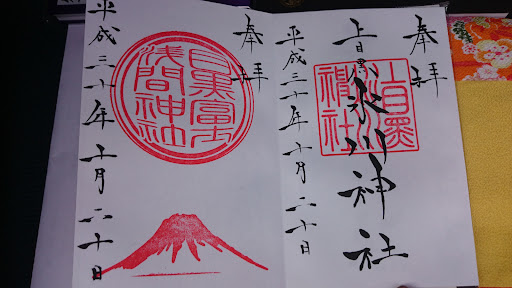 奉拝
上目黒氷川神社
上目黒
氷川
神社
平成三十年十月二十日
奉拝
目黒富士
浅間神社
平成三十年十月二十日